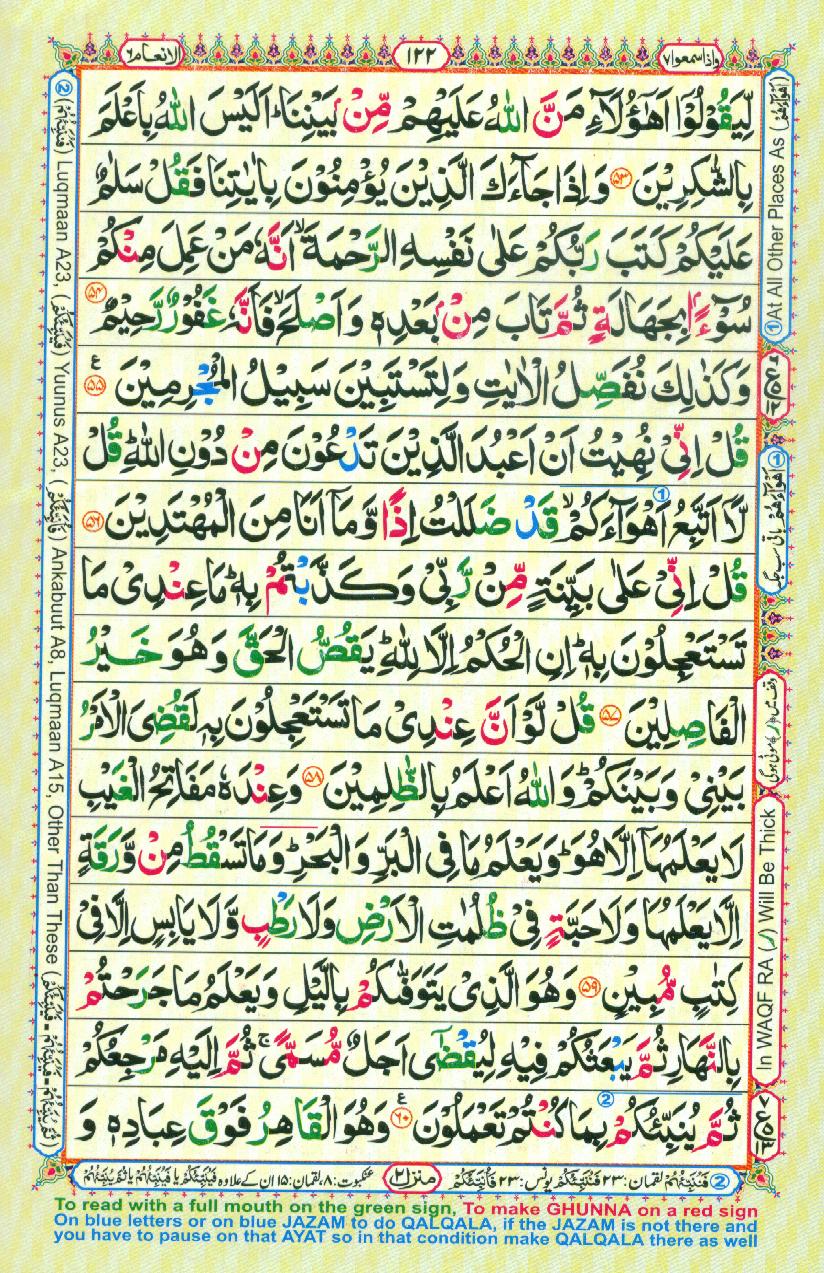 الانعام ٦
١٢٢
واذاسمعوا ٧
لِّيَقُوْلُوْۤا اَهٰٓؤُلَآءِ مَنَّ اللّٰهُ عَلَيْهِمْ مِّنْۢ بَيْنِنَا ؕ اَلَيْسَ اللّٰهُ بِاَعْلَمَ
بِالشّٰكِرِيْنَ ﴿٥٣﴾ وَاِذَا جَآءَكَ الَّذِيْنَ يُؤْمِنُوْنَ بِاٰيٰتِنَا فَقُلْ سَلٰمٌ
عَلَيْكُمْ كَتَبَ رَبُّكُمْ عَلٰى نَفْسِهِ الرَّحْمَةَ ۙ اَنَّهٗ مَنْ عَمِلَ مِنْكُمْ
سُوْٓءًۢا بِجَهَالَةٍ ثُمَّ تَابَ مِنْۢ بَعْدِهٖ وَ اَصْلَحَ ۙ فَاَنَّهٗ غَفُوْرٌ رَّحِيْمٌ ﴿٥٤﴾
وَكَذٰلِكَ نُفَصِّلُ الْاٰيٰتِ وَلِتَسْتَبِيْنَ سَبِيْلُ الْمُجْرِمِيْنَ ﴿٥٥﴾ ع
قُلْ اِنِّيْ نُهِيْتُ اَنْ اَعْبُدَ الَّذِيْنَ تَدْعُوْنَ مِنْ دُوْنِ اللّٰهِ ؕ قُلْ
لَّاۤ اَتَّبِعُ اَهْوَآءَكُمْ ۙ قَدْ ضَلَلْتُ اِذًا وَّمَاۤ اَنَا مِنَ الْمُهْتَدِيْنَ ﴿٥٦﴾
قُلْ اِنِّيْ عَلٰى بَيِّنَةٍ مِّنْ رَّبِّيْ وَكَذَّبْتُمْ بِهٖ ؕ مَا عِنْدِيْ مَا
تَسْتَعْجِلُوْنَ بِهٖ ؕ اِنِ الْحُكْمُ اِلَّا لِلّٰهِ ؕ يَقُصُّ الْحَقَّ وَهُوَ خَيْرُ
الْفَاصِلِيْنَ ﴿٥٧﴾ قُلْ لَّوْ اَنَّ عِنْدِيْ مَا تَسْتَعْجِلُوْنَ بِهٖ لَقُضِيَ الْاَمْرُ
بَيْنِيْ وَبَيْنَكُمْ ؕ وَاللّٰهُ اَعْلَمُ بِالظّٰلِمِيْنَ ﴿٥٨﴾ وَعِنْدَهٗ مَفَاتِحُ الْغَيْبِ
لَا يَعْلَمُهَاۤ اِلَّا هُوَ ؕ وَيَعْلَمُ مَا فِي الْبَرِّ وَالْبَحْرِ ؕ وَمَا تَسْقُطُ مِنْ وَّرَقَةٍ
اِلَّا يَعْلَمُهَا وَلَا حَبَّةٍ فِيْ ظُلُمٰتِ الْاَرْضِ وَلَا رَطْبٍ وَّلَا يَابِسٍ اِلَّا فِيْ
كِتٰبٍ مُّبِيْنٍ ﴿٥٩﴾ وَهُوَ الَّذِيْ يَتَوَفّٰىكُمْ بِالَّيْلِ وَيَعْلَمُ مَا جَرَحْتُمْ
بِالنَّهَارِ ثُمَّ يَبْعَثُكُمْ فِيْهِ لِيُقْضٰۤى اَجَلٌ مُّسَمًّى ۚ ثُمَّ اِلَيْهِ مَرْجِعُكُمْ
ثُمَّ يُنَبِّئُكُمْ بِمَا كُنْتُمْ تَعْمَلُوْنَ ﴿٦٠﴾ ع وَهُوَ الْقَاهِرُ فَوْقَ عِبَادِهٖ وَ
① At All Other Places As
In WAQF RA (ر) Will Be Thick
② Luqmaan A23, Yuunus A23, Ankabuut A8, Luqmaan A15, Other Than These
② لقمان: ٢٣ يونس: ٢٣
منزل ٢
عنكبوت: ٨، لقمان: ١٥ ان کے علاوہ
To read with a full mouth on the green sign, To make GHUNNA on a red sign
On blue letters or on blue JAZAM to do QALQALA, if the JAZAM is not there and
you have to pause on that AYAT so in that condition make QALQALA there as well